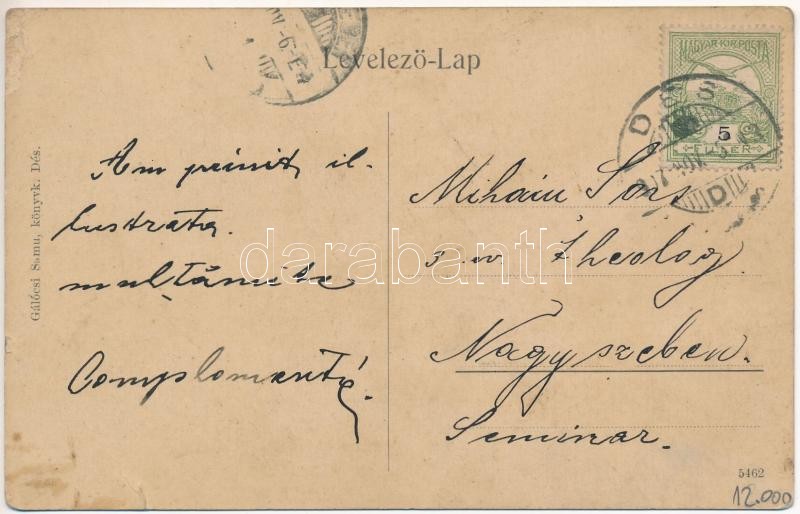 Levelező-Lap
MAGYAR·KIR·POSTA
5
FILLÉR
DÉS
Am primit il-
lustrata.
mulțămite
Complomente.
Mihaiu Sors
3. Theolog
Nagyszeben.
Seminar.
Gálócsi Samu, könyvk. Dés.
5462
12.000
darabanth